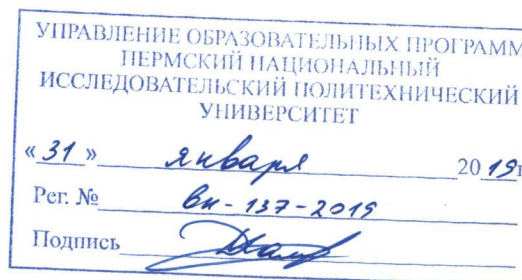 УПРАВЛЕНИЕ ОБРАЗОВАТЕЛЬНЫХ ПРОГРАММ
ПЕРМСКИЙ НАЦИОНАЛЬНЫЙ
ИССЛЕДОВАТЕЛЬСКИЙ ПОЛИТЕХНИЧЕСКИЙ
УНИВЕРСИТЕТ
«31» января 2019г
Рег. № вн-137-2019
Подпись